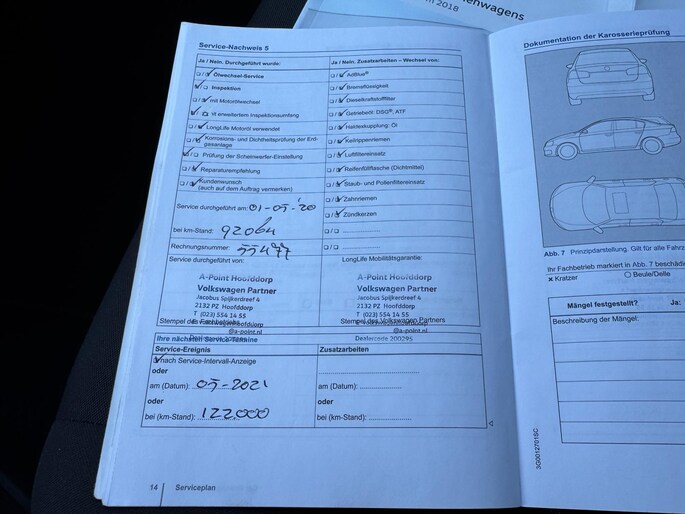 enwagens
2018
Service-Nachweis 5
Ja / Nein. Durchgeführt wurde:
Ölwechsel-Service
Inspektion
mit Motorölwechsel
ist erweitertem Inspektionsumfang
LongLife Motoröl verwendet
Korrosions- und Dichtheitsprüfung der Erd-
gasanlage
Prüfung der Scheinwerfer-Einstellung
Reparaturempfehlung
Kundenwunsch
(auch auf dem Auftrag vermerken)
Service durchgeführt am: 01-05-'20
bei km-Stand: 92064
Rechnungsnummer: 55477
Service durchgeführt von:
A-Point Hoofddorp
Volkswagen Partner
Jacobus Spijkerdreef 4
2132 PZ Hoofddorp
T (023) 554 14 55
@a-point.nl
Ja / Nein. Zusatzarbeiten – Wechsel von:
AdBlue®
Bremsflüssigkeit
Dieselkraftstofffilter
Getriebeöl, DSG®, ATF
Haldexkupplung: Öl
Keilrippenriemen
Luftfiltereinsatz
Reifenfüllflasche (Dichtmittel)
Staub- und Pollenfiltereinsatz
Zahnriemen
Zündkerzen
LongLife Mobilitätsgarantie:
A-Point Hoofddorp
Volkswagen Partner
Jacobus Spijkerdreef 4
2132 PZ Hoofddorp
T (023) 554 14 55
Stempel des Volkswagen Partners
@a-point.nl
Dealercode 200295
Ihre nächsten Service-Termine
Service-Ereignis
nach Service-Intervall-Anzeige
oder
am (Datum): 05-2021
oder
bei (km-Stand): 122.000
Zusatzarbeiten
am (Datum):
oder
bei (km-Stand):
14 Serviceplan
Dokumentation der Karosserieprüfung
Abb. 7 Prinzipdarstellung. Gilt für alle Fahrz
Ihr Fachbetrieb markiert in Abb. 7 beschäd
x Kratzer O Beule/Delle
Mängel festgestellt? Ja:
Beschreibung der Mängel:
3G0012701SC